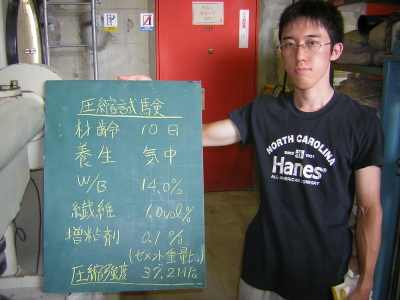 圧縮試験
材齢 10日
養生 気中
W/B 14.0%
繊維 1.0vol%
増粘剤 0.1%
(セメント重量比)
圧縮強度
NORTH CAROLINA
SINCE 1901
Hanes
ALL-AMERICAN COMFORT